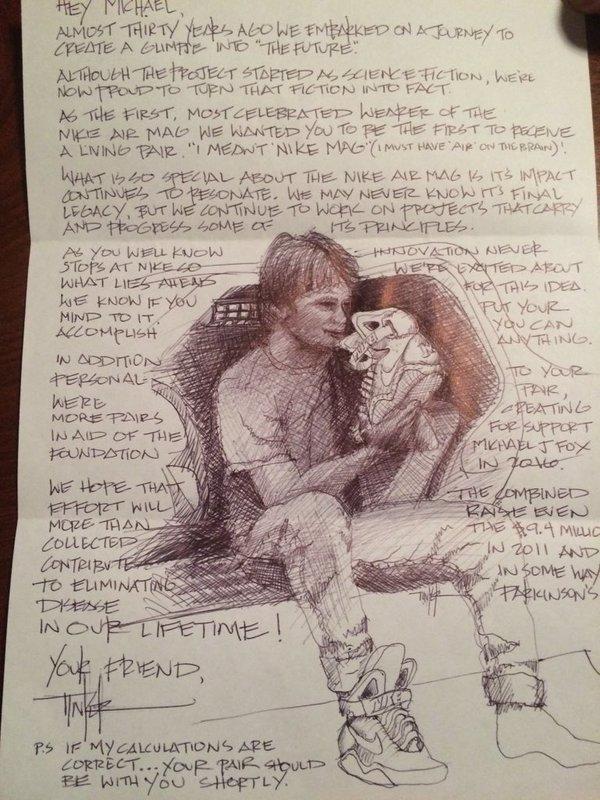 HEY MICHAEL,
ALMOST THIRTY YEARS AGO WE EMBARKED ON A JOURNEY TO
CREATE A GLIMPSE INTO "THE FUTURE".
ALTHOUGH THE PROJECT STARTED AS SCIENCE FICTION, WE'RE
NOW PROUD TO TURN THAT FICTION INTO FACT.
AS THE FIRST, MOST CELEBRATED WEARER OF THE
NIKE AIR MAG WE WANTED YOU TO BE THE FIRST TO RECEIVE
A LIVING PAIR. "I MEANT 'NIKE MAG' (I MUST HAVE 'AIR' ON THE BRAIN)!
WHAT IS SO SPECIAL ABOUT THE NIKE AIR MAG IS IT'S IMPACT
CONTINUES TO RESONATE. WE MAY NEVER KNOW IT'S FINAL
LEGACY, BUT WE CONTINUE TO WORK ON PROJECTS THAT CARRY
AND PROGRESS SOME OF ITS PRINCIPLES.
AS YOU WELL KNOW INNOVATION NEVER
STOPS AT NIKE SO WE'RE EXCITED ABOUT
WHAT LIES AHEAD FOR THIS IDEA.
WE KNOW IF YOU PUT YOUR
MIND TO IT. YOU CAN
ACCOMPLISH ANYTHING.
IN ADDITION TO YOUR
PERSONAL PAIR,
WE'RE CREATING
MORE PAIRS FOR SUPPORT
IN AID OF THE MICHAEL J FOX
FOUNDATION IN 2016.
WE HOPE THAT THE COMBINED
EFFORT WILL RAISE EVEN
MORE THAN THE $9.4 MILLIO
COLLECTED IN 2011 AND
CONTRIBUTE IN SOME WAY
TO ELIMINATING PARKINSON'S
DISEASE
IN OUR LIFETIME!
YOUR FRIEND,
TINKER
P.S IF MY CALCULATIONS ARE
CORRECT... YOUR PAIR SHOULD
BE WITH YOU SHORTLY.